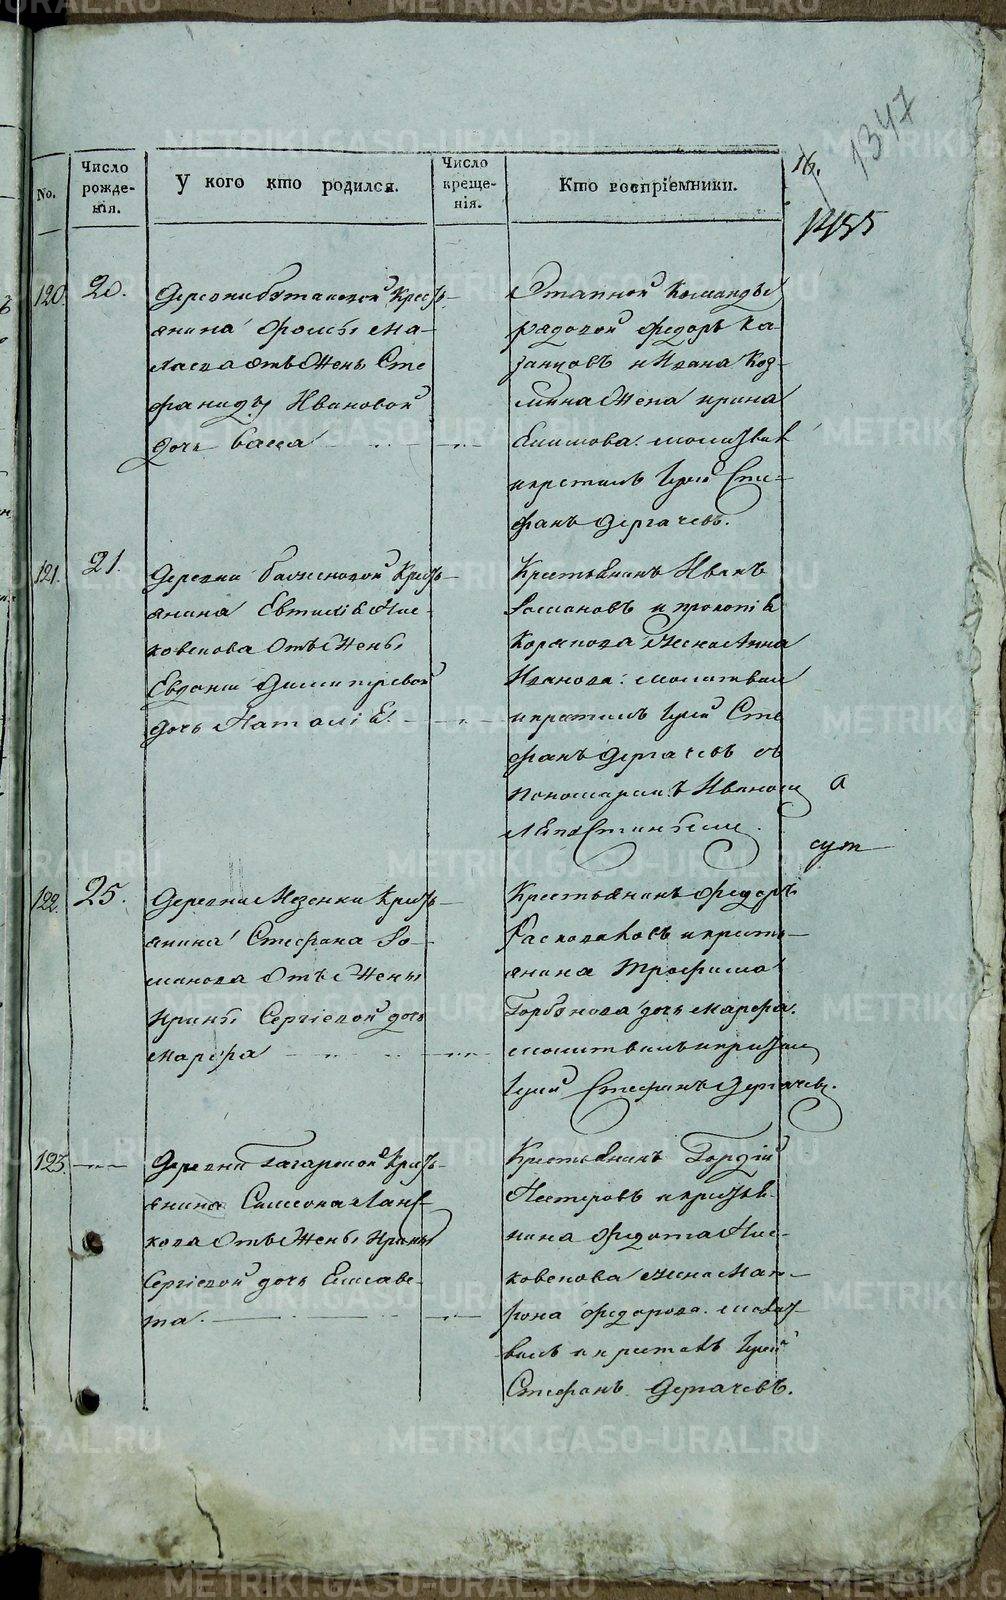 1347
16.
1455
No.
Число рожде- нія.
У кого кто родился.
Число креще- нія.
Кто воспріемники.
120. 20.
Деревни Крестъ-
янина Фомы Ма-
отъ Жены Сте
фаниды Ивановой
дочь
Этапной Команды
рядовой Федоръ Ка-
занцовъ и Ивана Коз-
мина Жена Ирина
молитвил
и крестилъ Іерей Сте-
фанъ Дергачевъ.
121. 21.
Деревни Крестъ-
янина Евтихія Мос-
ковскова Отъ Жены
Евдокіи Димитревой
дочь Наталія.
Крестьянинъ Иванъ
Романовъ и Прокопія
Жена Анна
Иванова. молитвил
и крестилъ Іерей Сте
фанъ Дергачевъ съ
пономаремъ Иваномъ
122. 25.
Деревни Мезенки Крестъ-
янина Стефана Ро-
манова Отъ Жены
Ирины Сергіевой дочь
Марфа
Крестьянинъ Федоръ
и кресть-
янина Трофима
Горбунова дочь Марфа.
молитвилъ и крестил
Іерей Стефанъ Дергачевъ.
123.
Деревни Крестъ-
янина Симеона
кова Отъ Жены Ирины
Сергіевой дочь Елисаве-
та.
Крестьянинъ Гордій
Нестеровъ и крестья-
нина Федота Мос-
ковскова Жена Мат-
рона Федорова. молит
вилъ и крестилъ Іерей
Стефанъ Дергачевъ.
METRIKI.GASO-URAL.RU